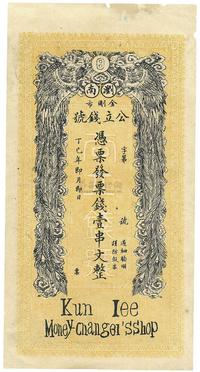 瀏南
金剛市
公立錢號
字第
號
憑票發票錢壹串文整
丁巳年 即月即日
票
Kun Iee
Money-changer'sshop